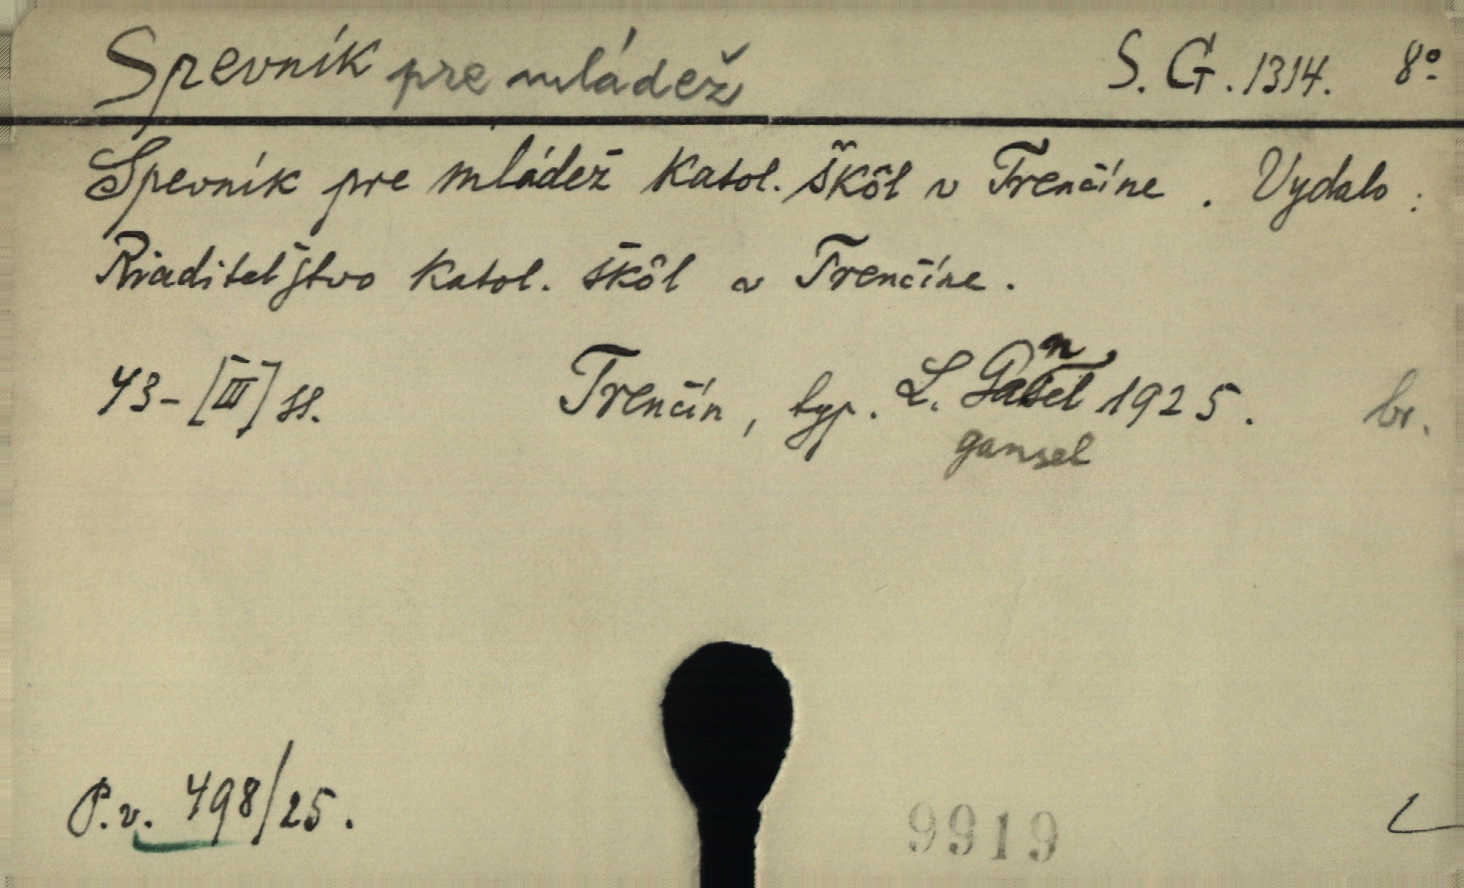 Spevník pre mládež S. G. 1314. 8º
Spevník pre mládež katol. škôl v Trenčíne. Vydalo:
Riaditeľstvo katol. škôl v Trenčíne.
43-[III] ss. Trenčín, typ. L. Gansel 1925. br.
gansel
P.v. 498/25.
9919